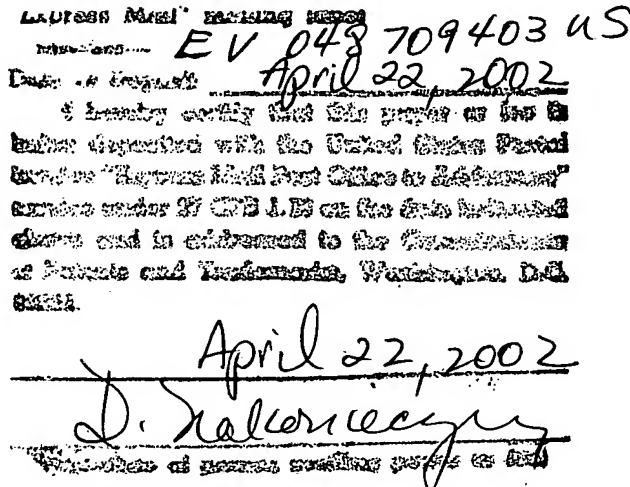 "Express Mail" mailing label
EV 048 709403 US
Date of Deposit April 22, 2002
I hereby certify that this paper or fee is
being deposited with the United States Postal
Service "Express Mail Post Office to Addressee"
service under 37 CFR 1.10 on the date indicated
above and is addressed to the Commissioner
of Patents and Trademarks, Washington, D.C.
April 22, 2002
D. Nakonieczny
of person mailing paper or fee